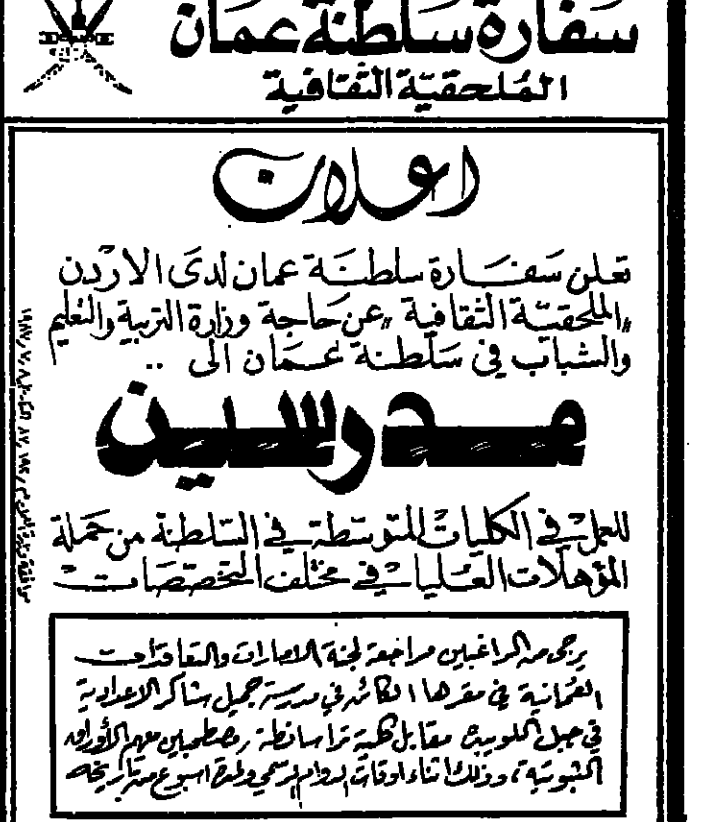 سفارة سلطنة عمان
الملحقية الثقافية
اعلان
تعلن سفارة سلطنة عمان لدى الاردن
"الملحقية الثقافية" عن حاجة وزارة التربية والتعليم
والشباب في سلطنة عمان الى ..
مدرسين
للعمل في الكليات المتوسطة في السلطنة من حملة
المؤهلات العليا في مختلف التخصصات
يرجى من الراغبين مراجعة لجنة الاعارات والتعاقدات
العمانية في مقرها الكائن في مدرسة جميل شاكر الاعدادية
في جبل اللويبدة مقابل كلية تراسانطة مصطحبين معهم الأوراق
الثبوتية، وذلك اثناء اوقات الدوام الرسمي ولمدة اسبوع من تاريخه